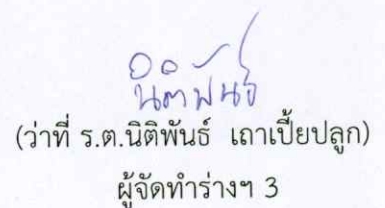 นิติพันธ์
(ว่าที่ ร.ต.นิติพันธ์ เถาเปี้ยปลูก)
ผู้จัดทำร่างฯ 3